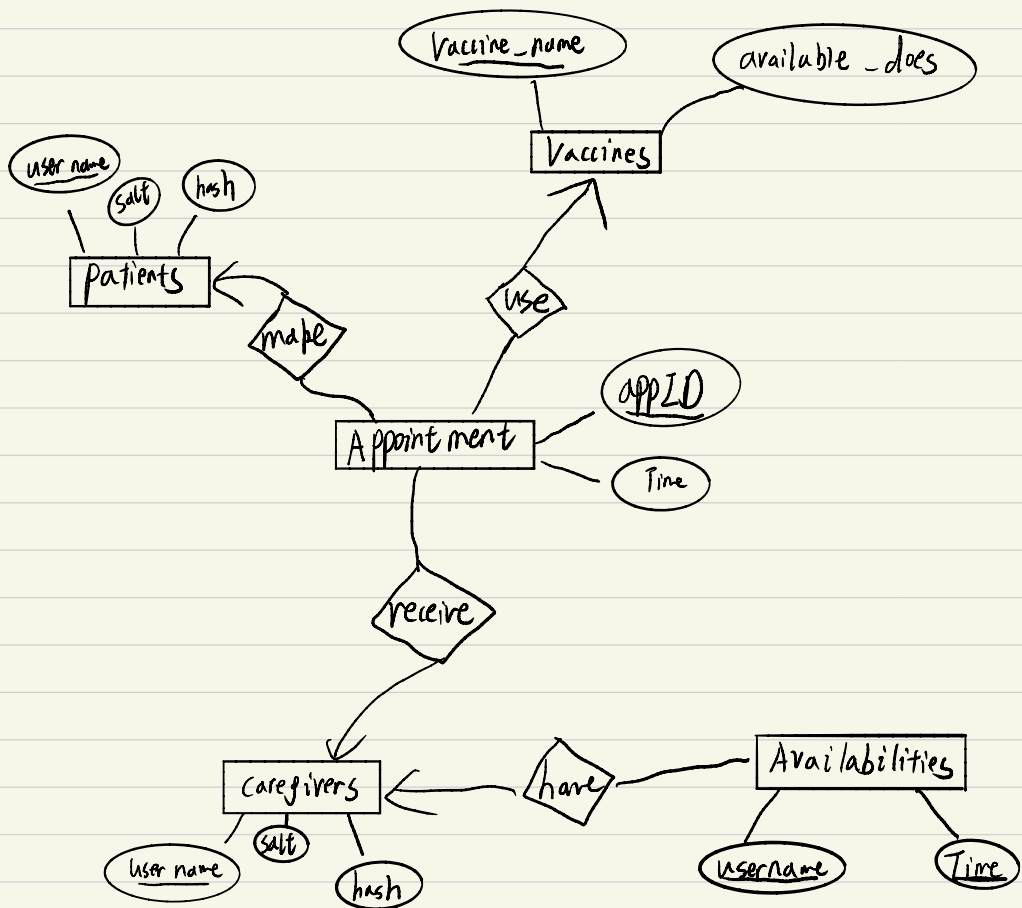 Vaccine_name
available_does
Vaccines
user name
salt
hash
patients
use
make
appID
Appointment
Time
receive
caregivers
have
Availabilities
user name
salt
hash
username
Time